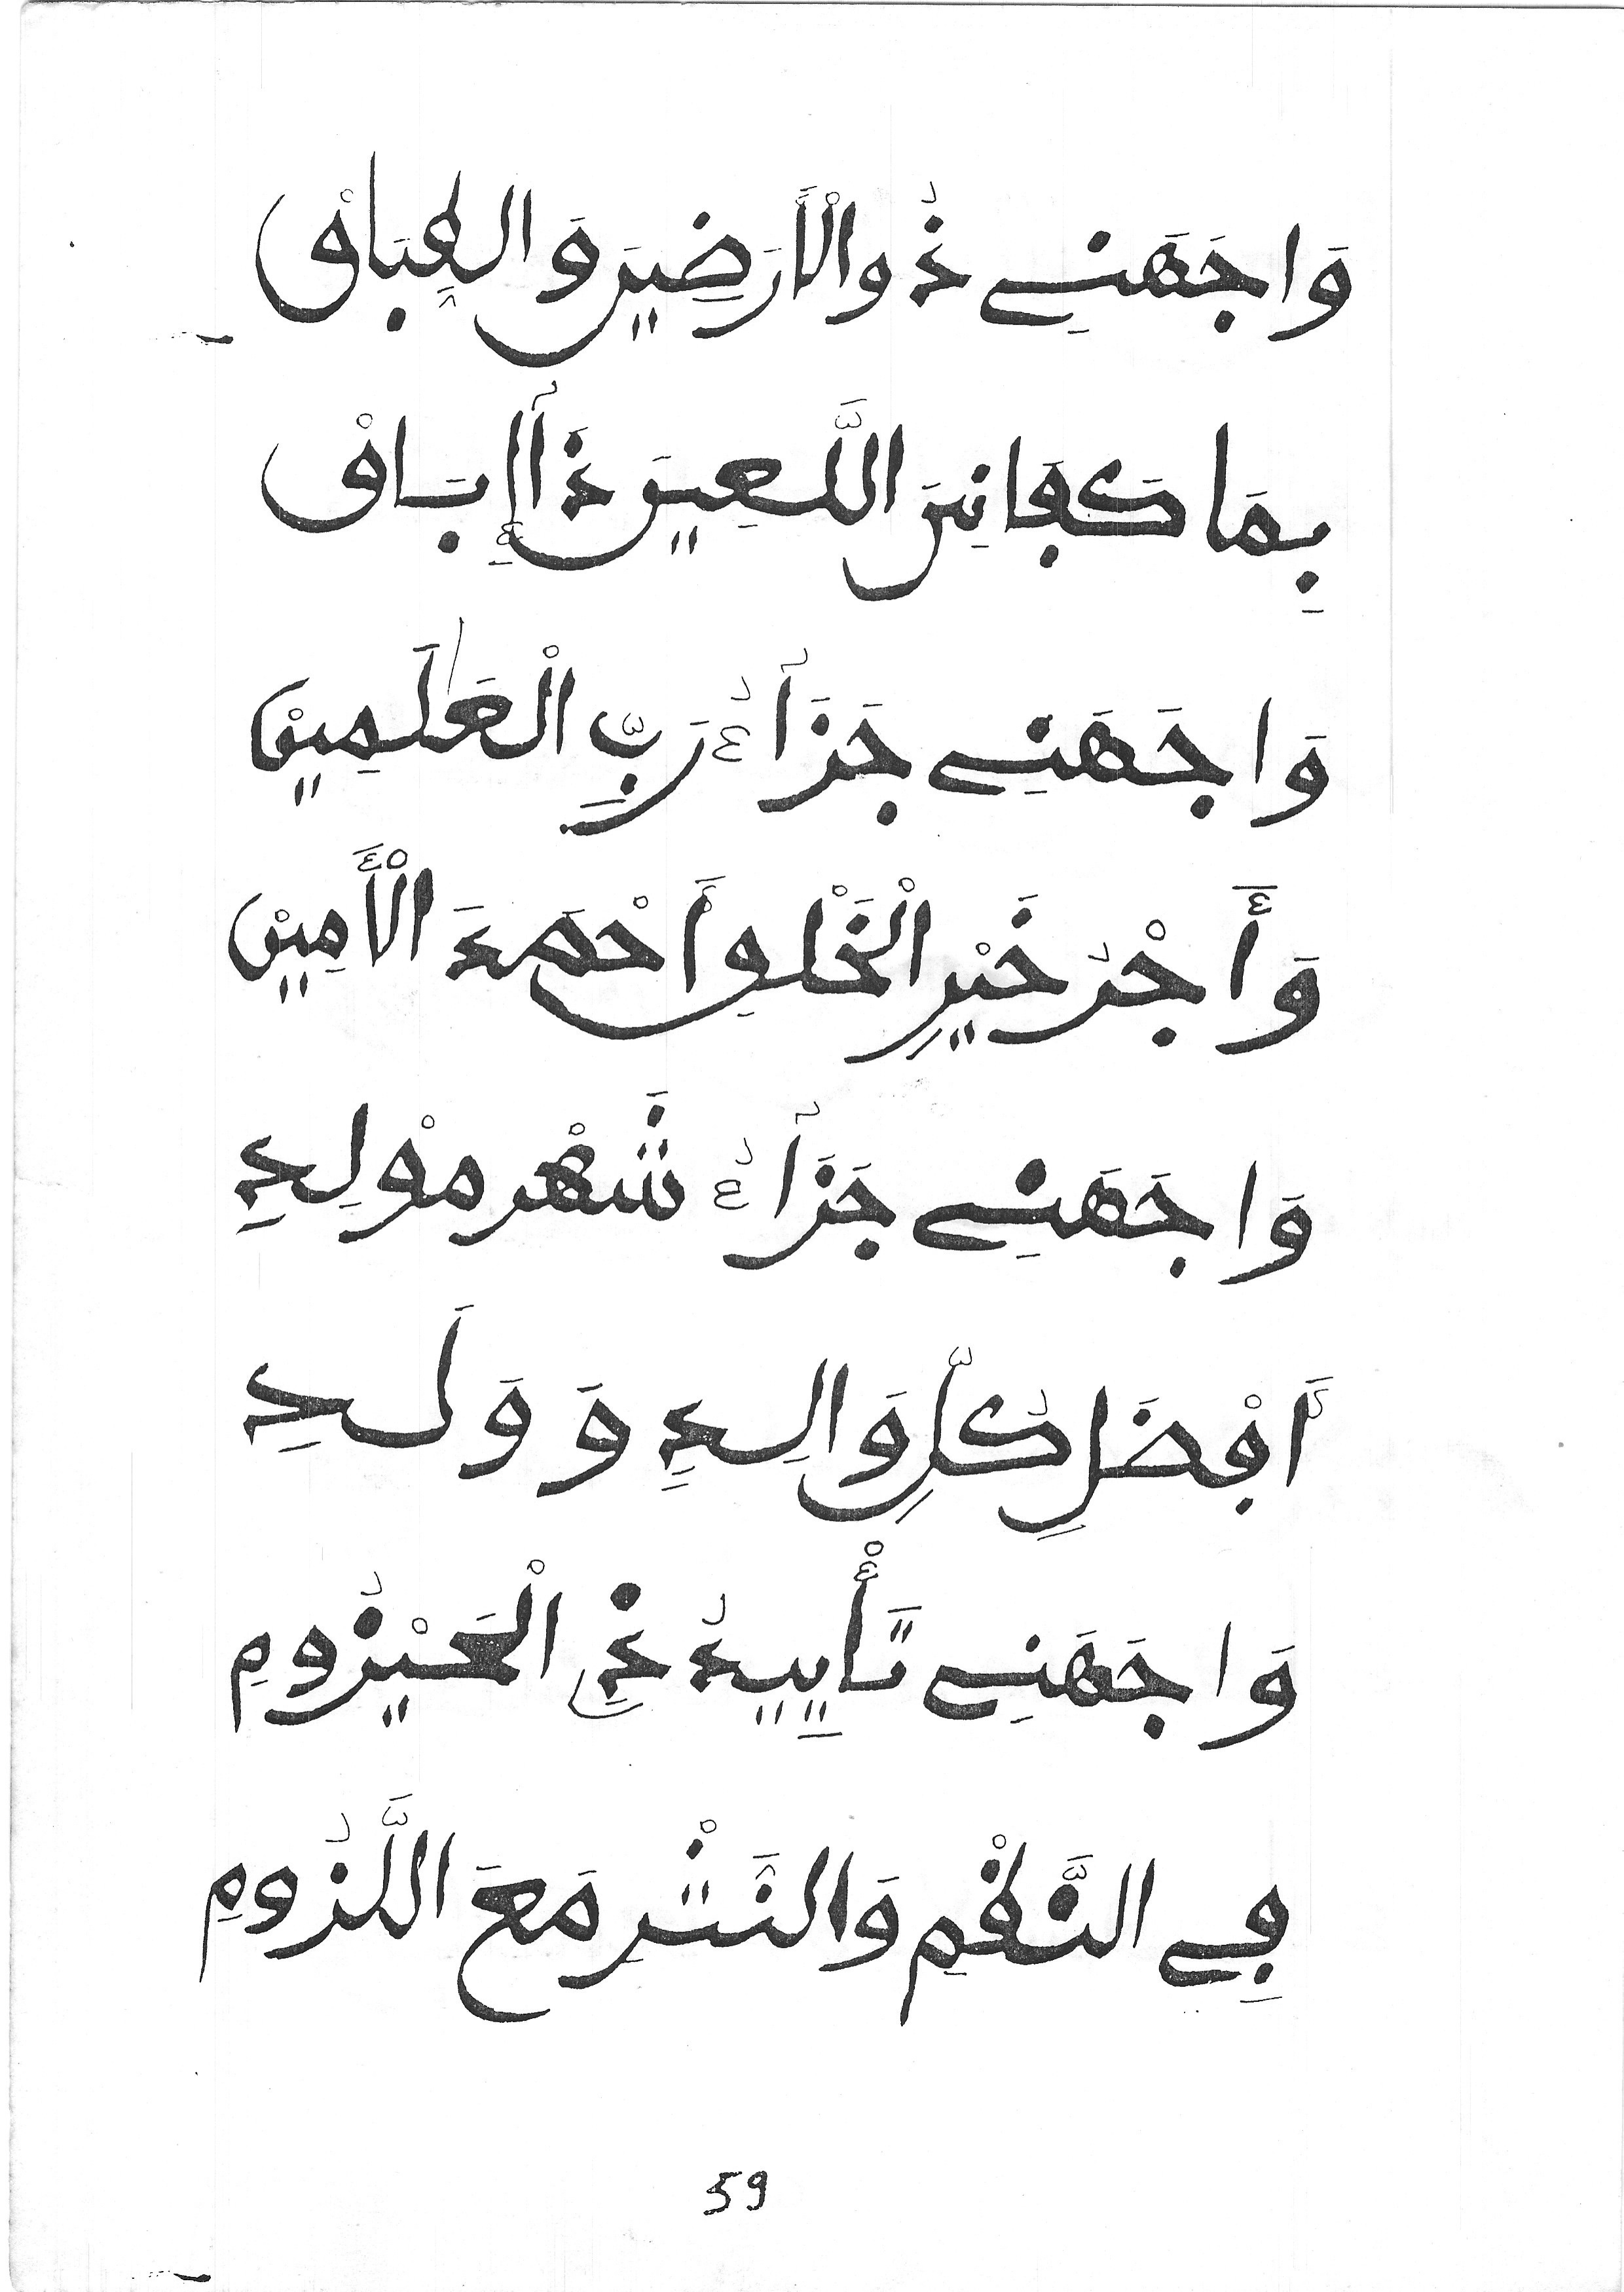 وَاجَهَنِے ذُو الْأَرَضِينَ وَالطِّبَاقْ
بِمَا كَفَانِىَ اللَّعِينَ ذَا إِبَاقْ
وَاجَهَنِے جَزَآءُ رَبِّ الْعَٰلَمِينْ
وَأَجْرُ خَيْرِ الْخَلْقِ أَحْمَدَ الْأَمِينْ
وَاجَهَنِے جَزَآءُ شَهْرِ مَوْلِدِ
أَفْضَلِ كُلِّ وَالِدٍ وَوَلَدِ
وَاجَهَنِے تَأْيِيدُ ذِى الْحَيْزُومِ
فِے النَّظْمِ وَالنَّثْرِ مَعَ اللُّزُومِ
59